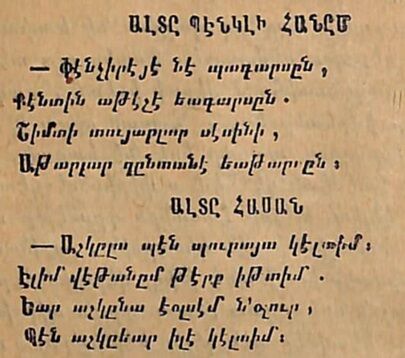 ԱԼՏԸ ՊԷՆԿԼԻ ՀԱՆԸՄ
— Փէնչիրէյէ նէ պագարսըն ,
Քէնտին աթէշէ եագարսըն .
Շիմտի տույարլար սէսինի ,
Աթարլար զընտանէ եաթարսըն ։
ԱԼՏԸ ՀԱՍԱՆ
— Աշկըլա պէն պուրայա կէլտիմ ։
Էլիմ վէթանըմ թէրք իթտիմ .
Եար աշկընա էօլսէմ ն՚օլուր ,
Պէն աշկըեար իլէ կէլտիմ ։